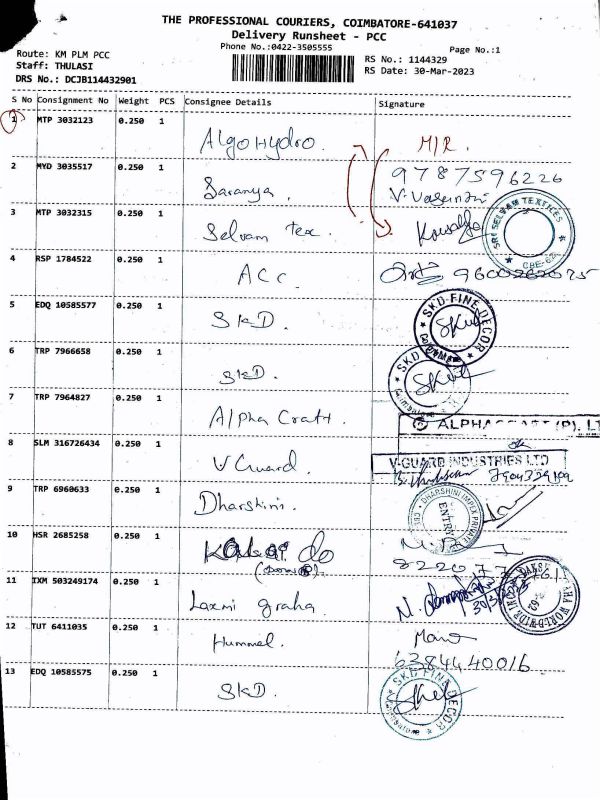 THE PROFESSIONAL COURIERS, COIMBATORE-641037
Delivery Runsheet - PCC
Phone No.:0422-3505555
Page No.:1
Route: KM PLM PCC
Staff: THULASI
DRS No.: DCJB114432901
RS No.: 1144329
RS Date: 30-Mar-2023
S No Consignment No Weight PCS Consignee Details Signature
1 MTP 3032123 0.250 1
AlgoHydro. M/R.
2 MYD 3035517 0.250 1
Saranya. 9787596226
V. Vasumathi
3 MTP 3032315 0.250 1
Selvam tex. Kowsalya
SRI SELVAM TEXTICES
CBE-62
4 RSP 1784522 0.250 1
ACC. 9600262075
5 EDQ 10585577 0.250 1
SKD. SKD FINE DECOR
6 TRP 7966658 0.250 1
SKD. SKD
7 TRP 7964827 0.250 1
Alpha Craft. ALPHACRAFT (P). LT
8 SLM 316726434 0.250 1
V Guard. V-GUARD INDUSTRIES LTD
9 TRP 6960633 0.250 1
Dharshini. DHARSHINI IMPEX PRIVATE
ENTRY
10 HSR 2685258 0.250 1
11 IXM 503249174 0.250 1
Laxmi graha.
12 TUT 6411035 0.250 1
Hummel. Mano
6384440016
13 EDQ 10585575 0.250 1
SKD. SKD FINE DECOR